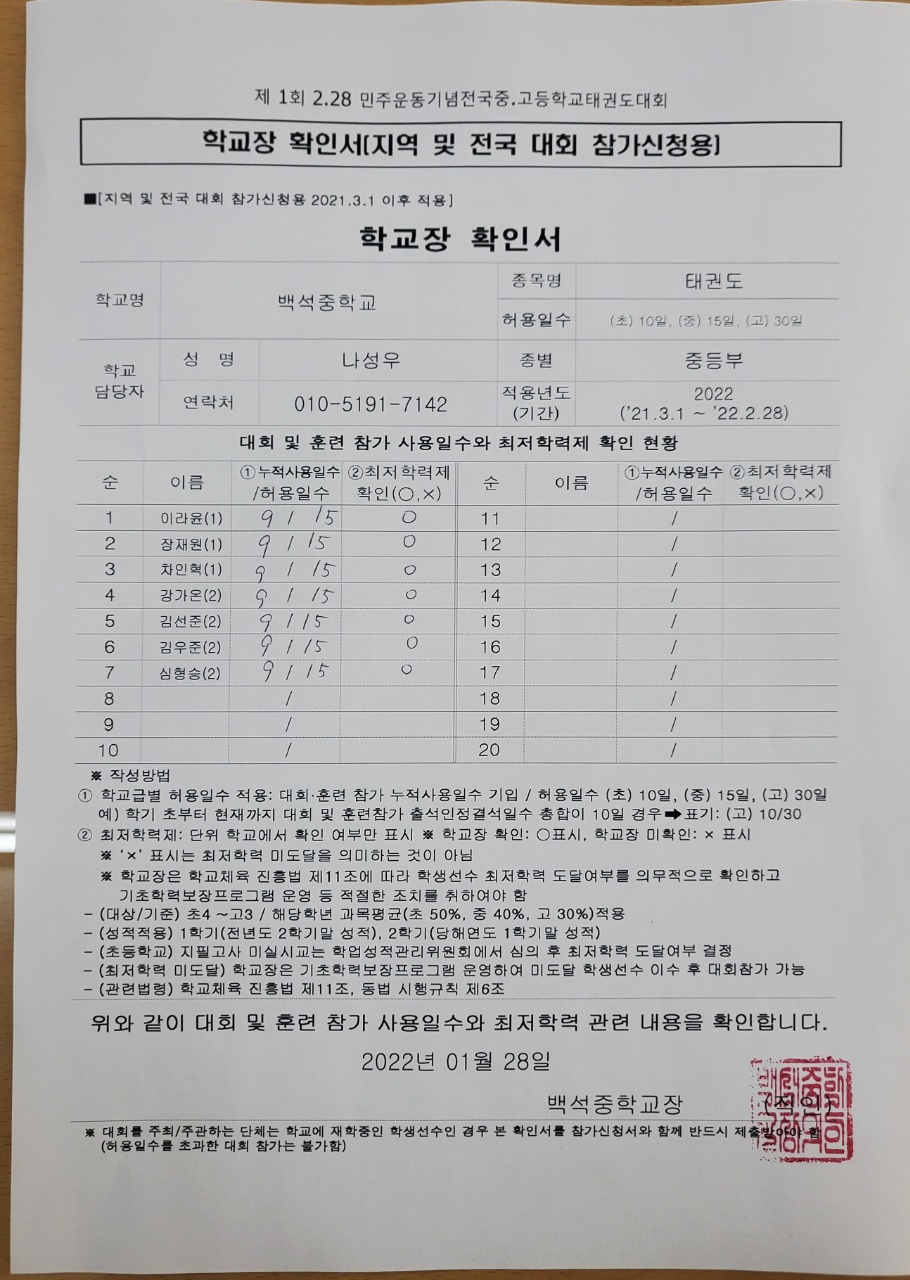 제 1회 2.28 민주운동기념전국중.고등학교태권도대회
학교장 확인서(지역 및 전국 대회 참가신청용)
■[지역 및 전국 대회 참가신청용 2021.3.1 이후 적용]
학교장 확인서
학교명 백석중학교 종목명 태권도
허용일수 (초) 10일, (중) 15일, (고) 30일
학교 담당자 성 명 나성우 종별 중등부
연락처 010-5191-7142 적용년도 (기간) 2022 ('21.3.1 ~ '22.2.28)
대회 및 훈련 참가 사용일수와 최저학력제 확인 현황
순 이름 ①누적사용일수 /허용일수 ②최저학력제 확인(○,×) 순 이름 ①누적사용일수 /허용일수 ②최저학력제 확인(○,×)
1 이라윤(1) 9 / 15 ○ 11 /
2 장재원(1) 9 / 15 ○ 12 /
3 차인혁(1) 9 / 15 ○ 13 /
4 강가온(2) 9 / 15 ○ 14 /
5 김선준(2) 9 / 15 ○ 15 /
6 김우준(2) 9 / 15 ○ 16 /
7 심형승(2) 9 / 15 ○ 17 /
8 / 18 /
9 / 19 /
10 / 20 /
※ 작성방법
① 학교급별 허용일수 적용: 대회·훈련 참가 누적사용일수 기입 / 허용일수 (초) 10일, (중) 15일, (고) 30일
예) 학기 초부터 현재까지 대회 및 훈련참가 출석인정결석일수 총합이 10일 경우➡표기: (고) 10/30
② 최저학력제: 단위 학교에서 확인 여부만 표시 ※ 학교장 확인: ○표시, 학교장 미확인: × 표시
※ '×' 표시는 최저학력 미도달을 의미하는 것이 아님
※ 학교장은 학교체육 진흥법 제11조에 따라 학생선수 최저학력 도달여부를 의무적으로 확인하고
기초학력보장프로그램 운영 등 적절한 조치를 취하여야 함
- (대상/기준) 초4 ~고3 / 해당학년 과목평균(초 50%, 중 40%, 고 30%)적용
- (성적적용) 1학기(전년도 2학기말 성적), 2학기(당해연도 1학기말 성적)
- (초등학교) 지필고사 미실시교는 학업성적관리위원회에서 심의 후 최저학력 도달여부 결정
- (최저학력 미도달) 학교장은 기초학력보장프로그램 운영하여 미도달 학생선수 이수 후 대회참가 가능
- (관련법령) 학교체육 진흥법 제11조, 동법 시행규칙 제6조
위와 같이 대회 및 훈련 참가 사용일수와 최저학력 관련 내용을 확인합니다.
2022년 01월 28일
백석중학교장 (직인)
※ 대회를 주최/주관하는 단체는 학교에 재학중인 학생선수인 경우 본 확인서를 참가신청서와 함께 반드시 제출받아야 함
(허용일수를 초과한 대회 참가는 불가함)